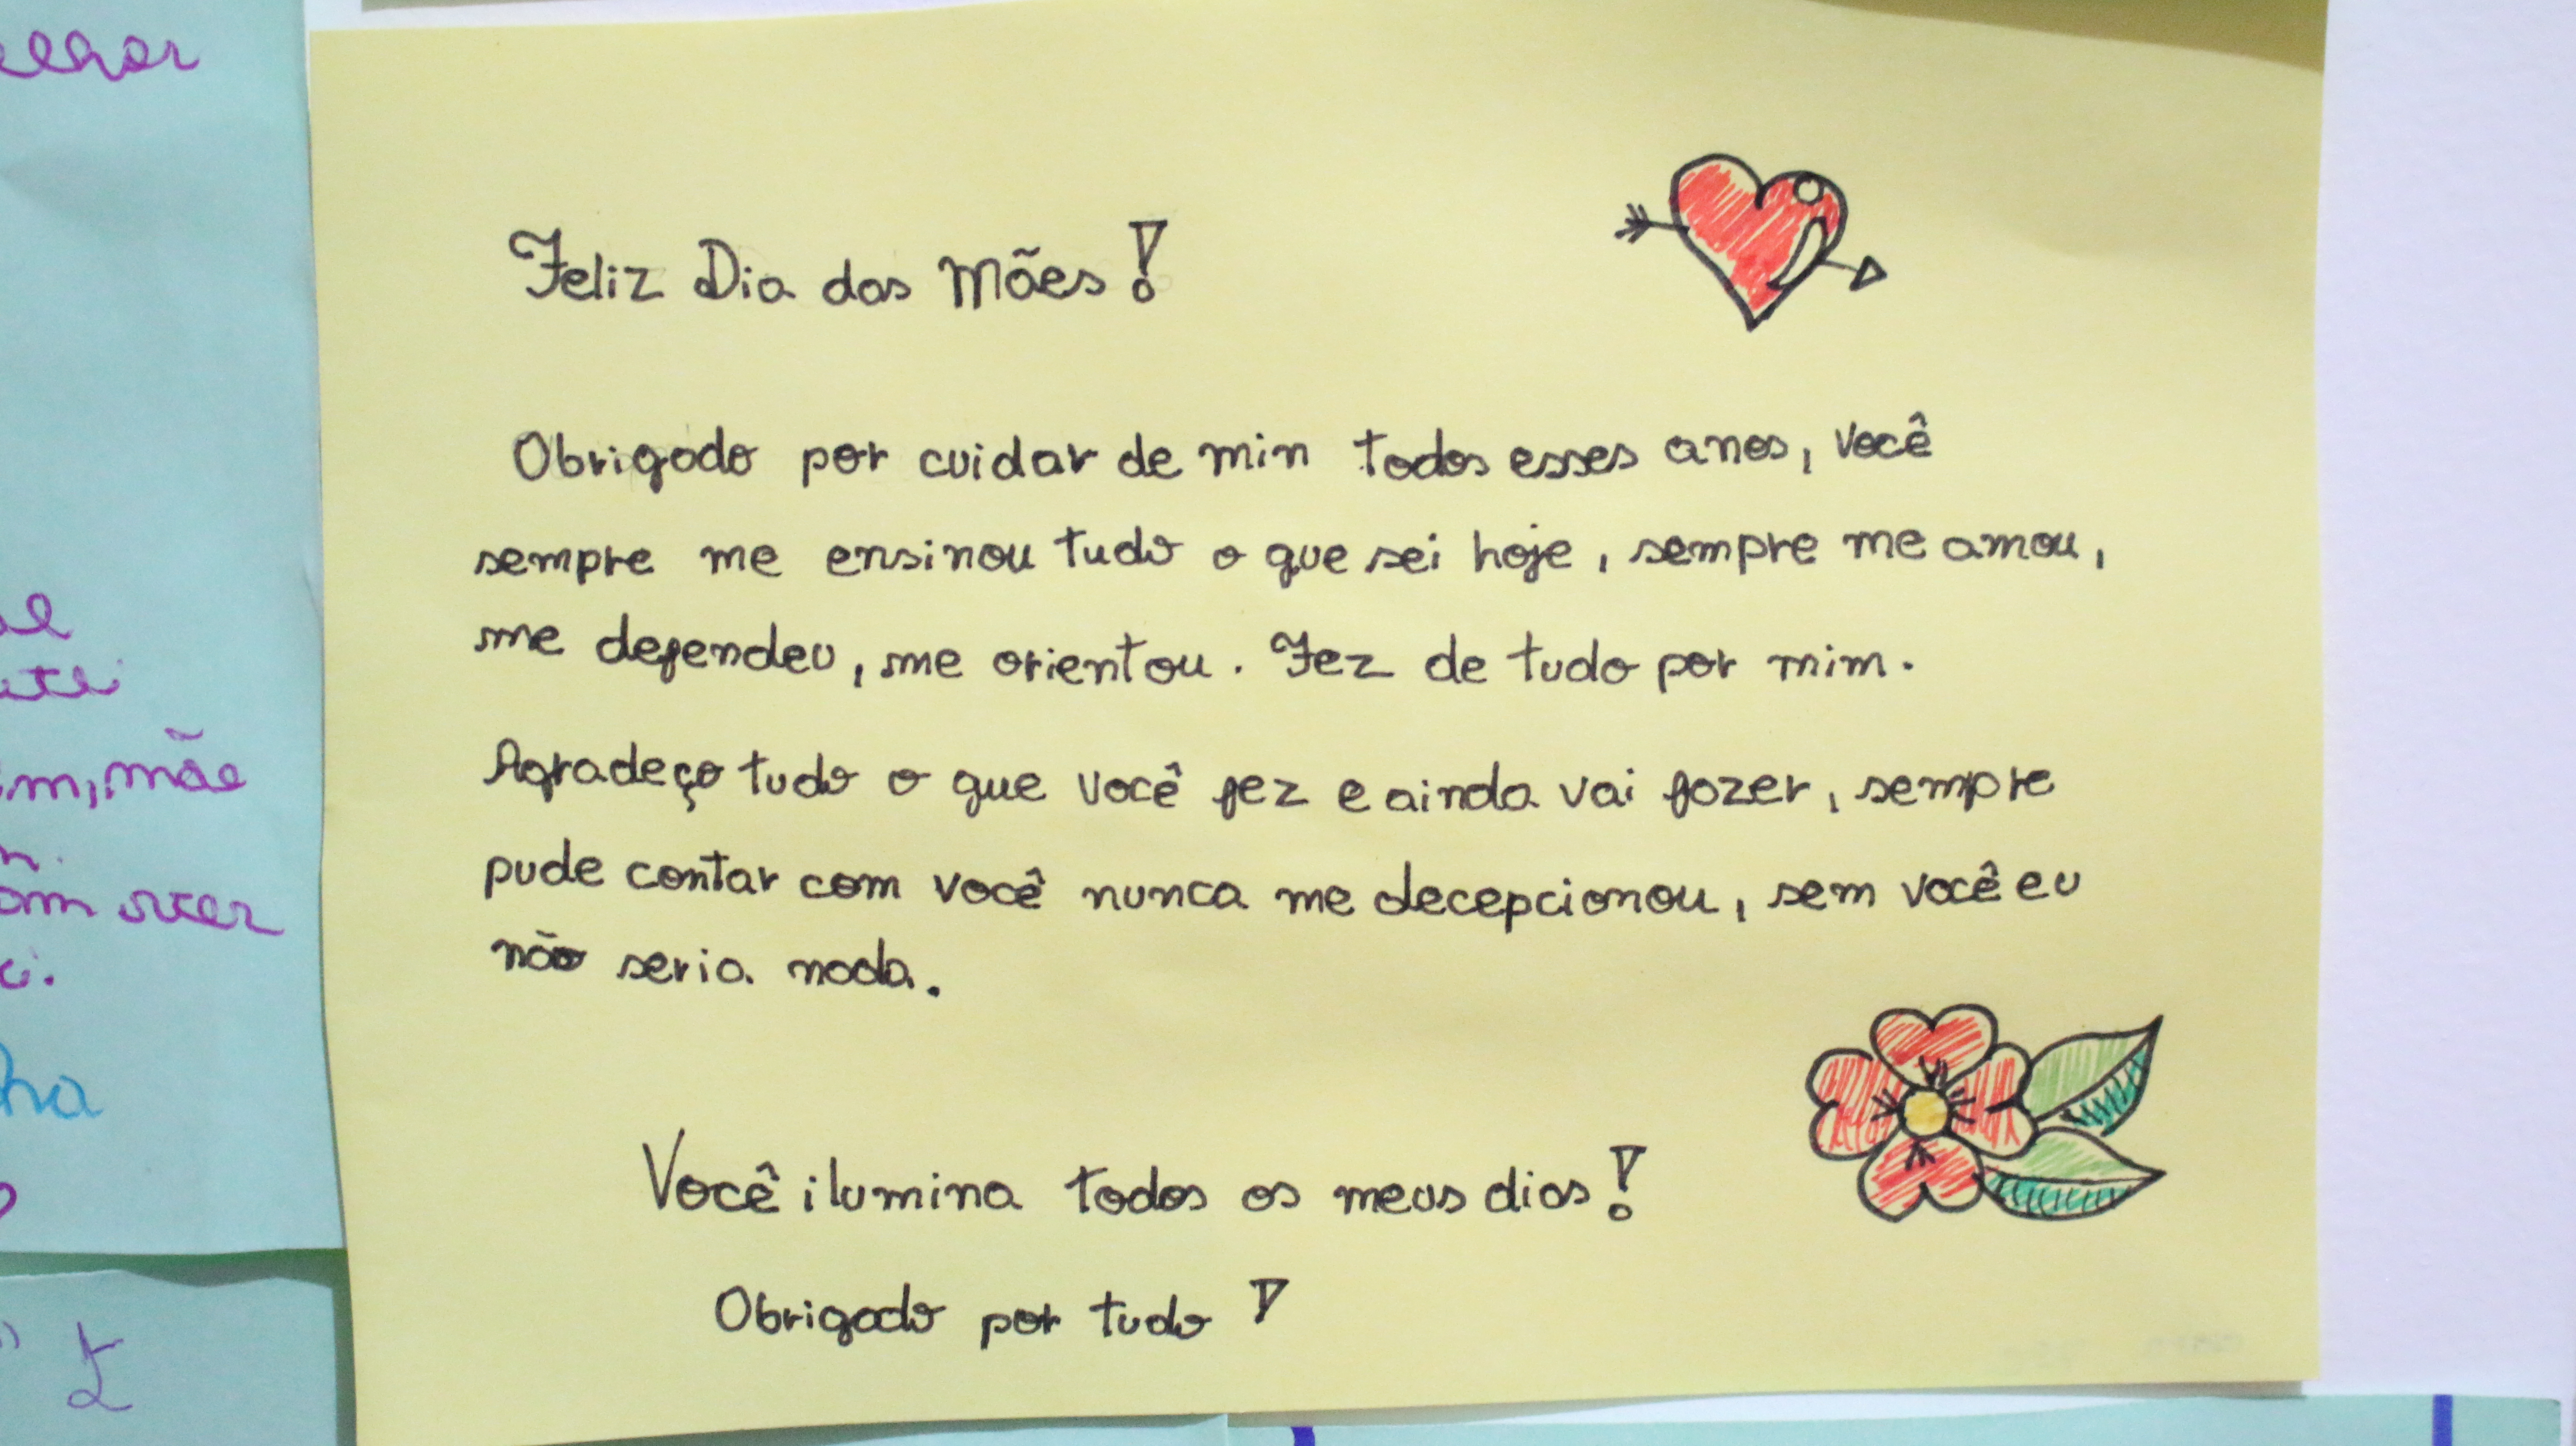 Feliz Dia das Mães!
Obrigado por cuidar de min todos esses anos, você
sempre me ensinou tudo o que sei hoje, sempre me amou,
me defendeu, me orientou. Fez de tudo por mim.
Agradeço tudo o que você fez e ainda vai fazer, sempre
pude contar com você nunca me decepcionou, sem você eu
não seria nada.
Você ilumina todos os meus dias!
Obrigado por tudo!
mãe